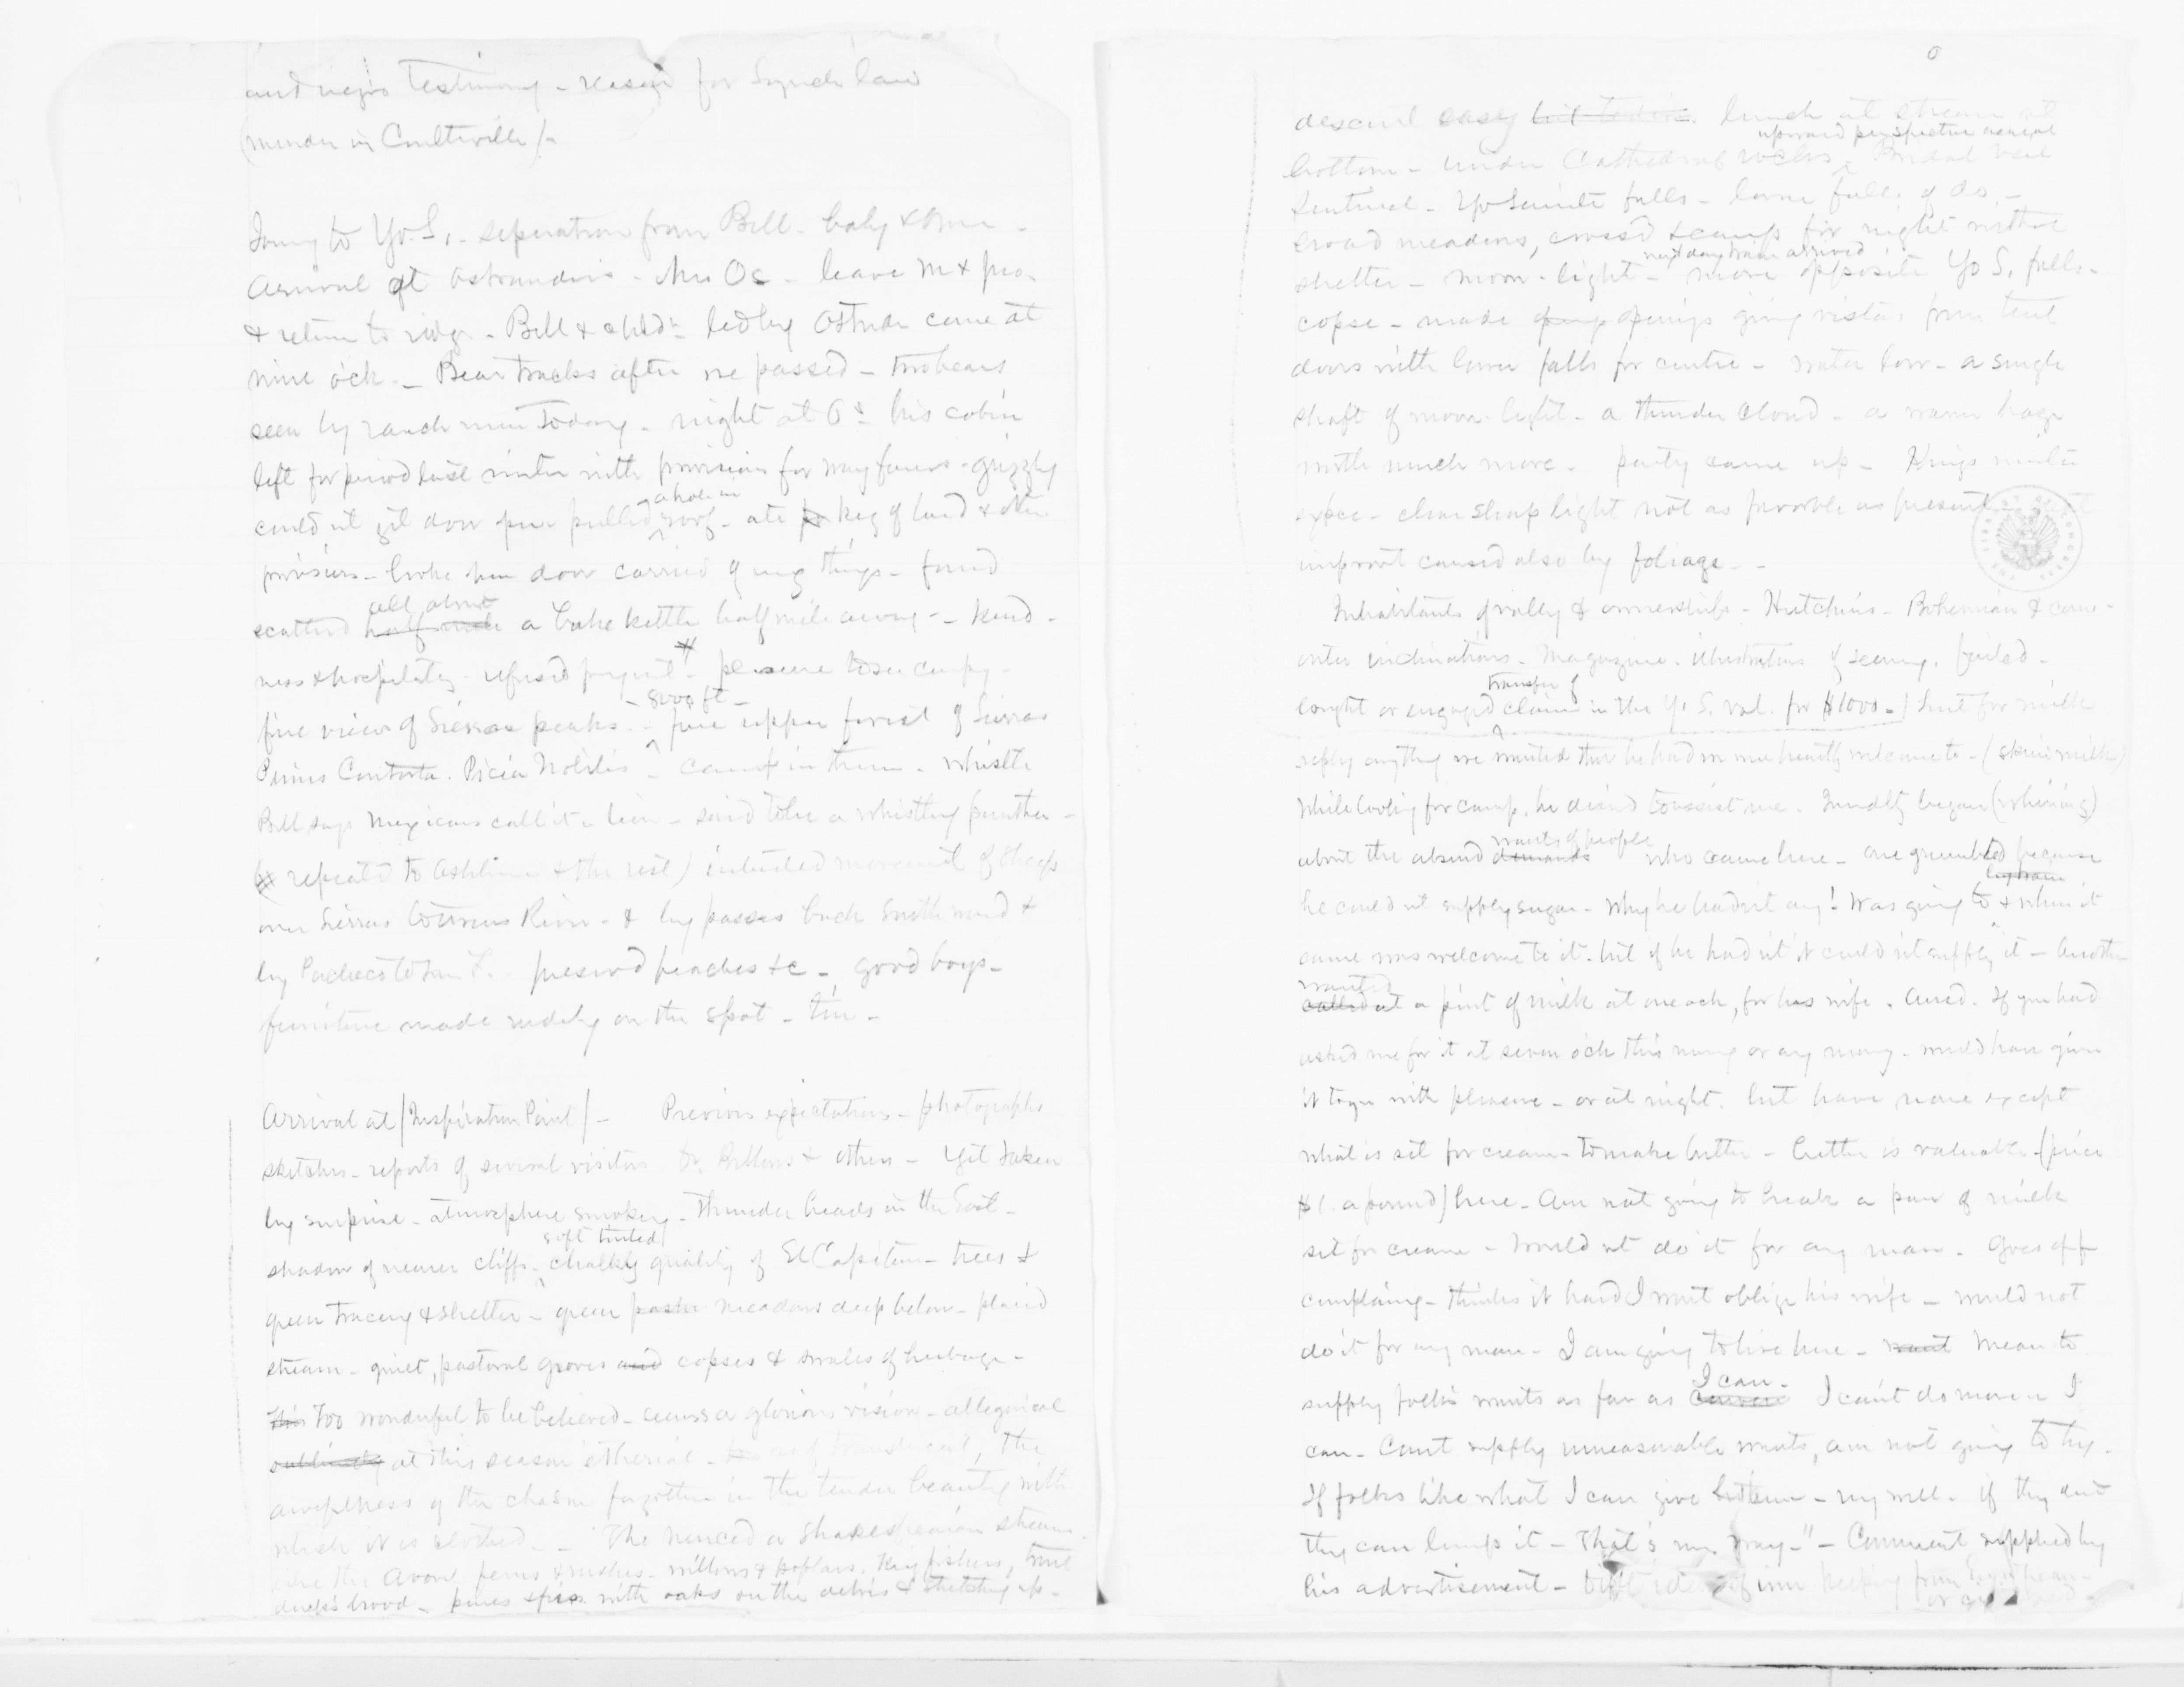 and negro testimony - reason for Lynch law
(murder in Coulterville)-
to Yo. S. - separation from Bell - baby &
Arrival at Ostranders - Mrs Os - leave M &
& return to ridge - Bell & led by Ostrander came at
nine o'ck. - Bear tracks after we passed - two bears
seen by ranch men today - night at Os his cabin
left for winter with provisions for wayfarers - grizzly
could n't get door open pulled a hole in roof - ate keg of lard & other
provisions - broke open door carried off things - found
scattered half mile all about a bake kettle half mile away - kind-
ness & hospitality - refused payment - pleasure to see company -
fine view of Sierras peaks - 8000 ft - fine upper forest of Sierras
Pinus Contorta. Picia Nobilis - camp in them - whistle
Bell says Mexicans call it a lion - said to be a whistling panther -
repeated to Ashburner & the rest) intended movement of sheep
over Sierras to River - & by passes back South ward &
by Pacheco to preserved peaches &c - good boys -
furniture made rudely on the spot - tin -
Arrival at [Inspiration Point] - Previous expectations - photographs
sketches - reports of several visitors Dr. Bellows & others - Yet taken
by surprise - atmosphere smokey - Thunder heads in the East -
shadow of nearer cliffs - soft tinted chalky quality of El Capitan - trees &
green tracery & shelter - green meadows deep below - placid
stream - quiet, pastoral groves and copses & swales of herbage -
This Too wonderful to be believed - seems a glorious vision - allegorical
at this season etherial - and the
awfulness of the chasm forgotten in the tender beauty with
which it is clothed - - The merced a Shakespearian stream
like the Avon ferns & rushes - willows & poplars. Kingfishers, trout
ducks brood - pines firs with oaks on the debris & stretching up -
descent easy lunch at stream at
bottom - under Cathedral rocks, upward perspective Bridal Veil
Sentinel - Yo Semite falls - lower falls of do -
broad meadows, crossed & camp for night without
shelter - moon-light - next day train arrived move opposite Yo S. falls -
copse - made openings giving vistas from tent
doors with lower falls for centre - water low - a single
shaft of moon-light - a thunder cloud - a warm haze
worth much more. party came up - Kings winter
clear sharp light not as favorable as present
improvt caused also by foliage - -
Inhabitants of vally & ownership - Hutchins - Bohemian &
inclinations. Magazine. illustrations of scenery. failed -
bought or engaged transfer of claim in the Yo S. val. for $1000 - / Sent for milk
reply anything we wanted that he had we were heartily welcome to - (skim milk)
While looking for camp, he desired to assist me. began (whining)
about the absurd demands wants of people who came here - one grumbled because
he could n't supply sugar - Why he hadn't any! Was going to & when it
came was welcome to it. but if he hadn't it could n't supply it - Another
called at wanted a pint of milk at one ock, for his wife. If you had
asked me for it at seven ock this morng or any morng - would have given
it to you with pleasure - or at night. but have none except
what is set for cream - to make butter - butter is valuable - (price
$1. a pound) here - Am not going to break a pan of milk
set for cream - Would n't do it for any man - Goes off
complaing - thinks it hard I wont oblige his wife - would not
do it for any man - I am going to live here - want mean to
supply folks wants as far as I can - I can't do more n I
can - Cant supply unreasonable wants, am not going to try.
If folks like what I can give - very well - if they dont
they can lump it - That's my way -" - Comment supplied by
his advertisement - of inn keeping from